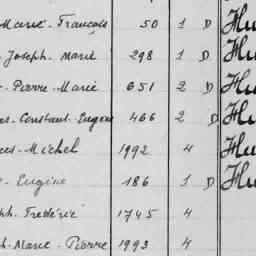 Marie - François 50 1 D Hu
Joseph Marie 298 1 D Hu
Pierre - Marie 651 2 D Hu
Constant - Eugène 466 2 D Hu
Michel 1992 4 Hu
Eugène 186 1 D Hu
Frédéric 1745 4
Marie - Pierre 1993 4